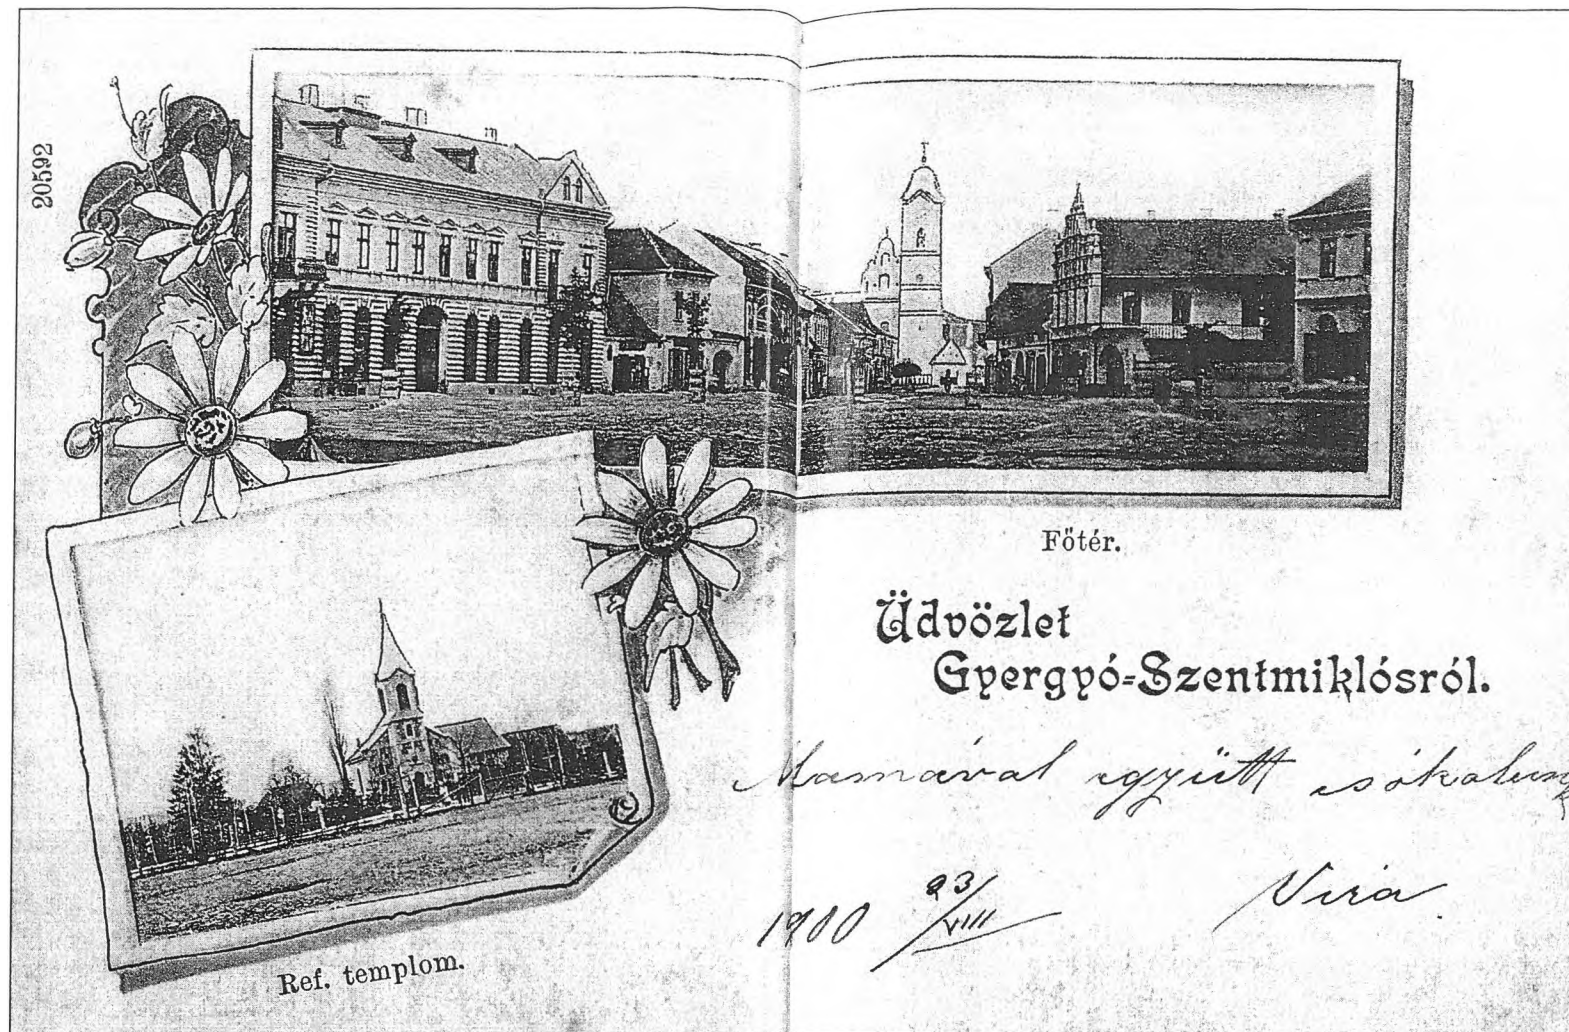 20592
Főtér.
Üdvözlet
Gyergyó-Szentmiklósról.
Mamával együtt csókolunk
1900 23/VIII
Ref. templom.